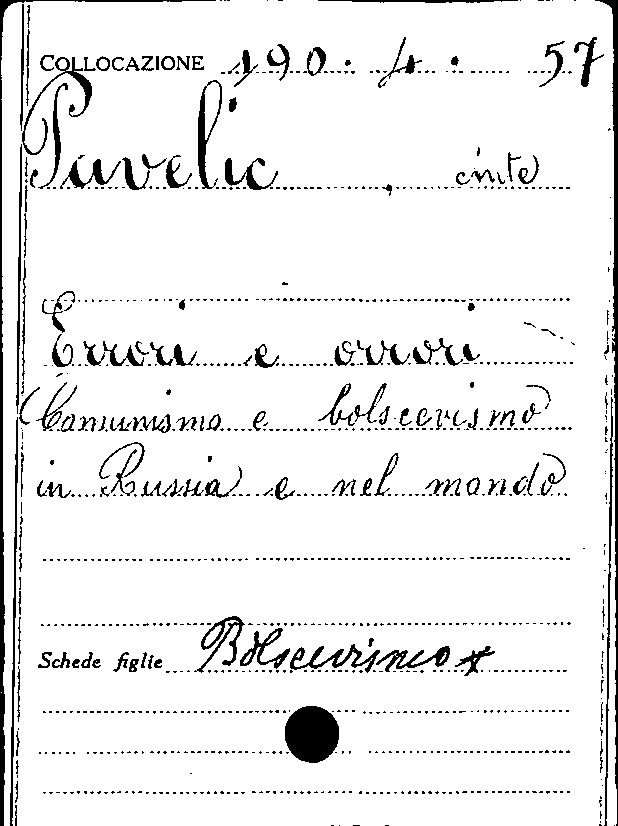 COLLOCAZIONE 190. 4. 57
Pavelic, Ante
Errori e orrori
Comunismo e bolscevismo
in Russia e nel mondo
Schede figlie Bolscevismo x